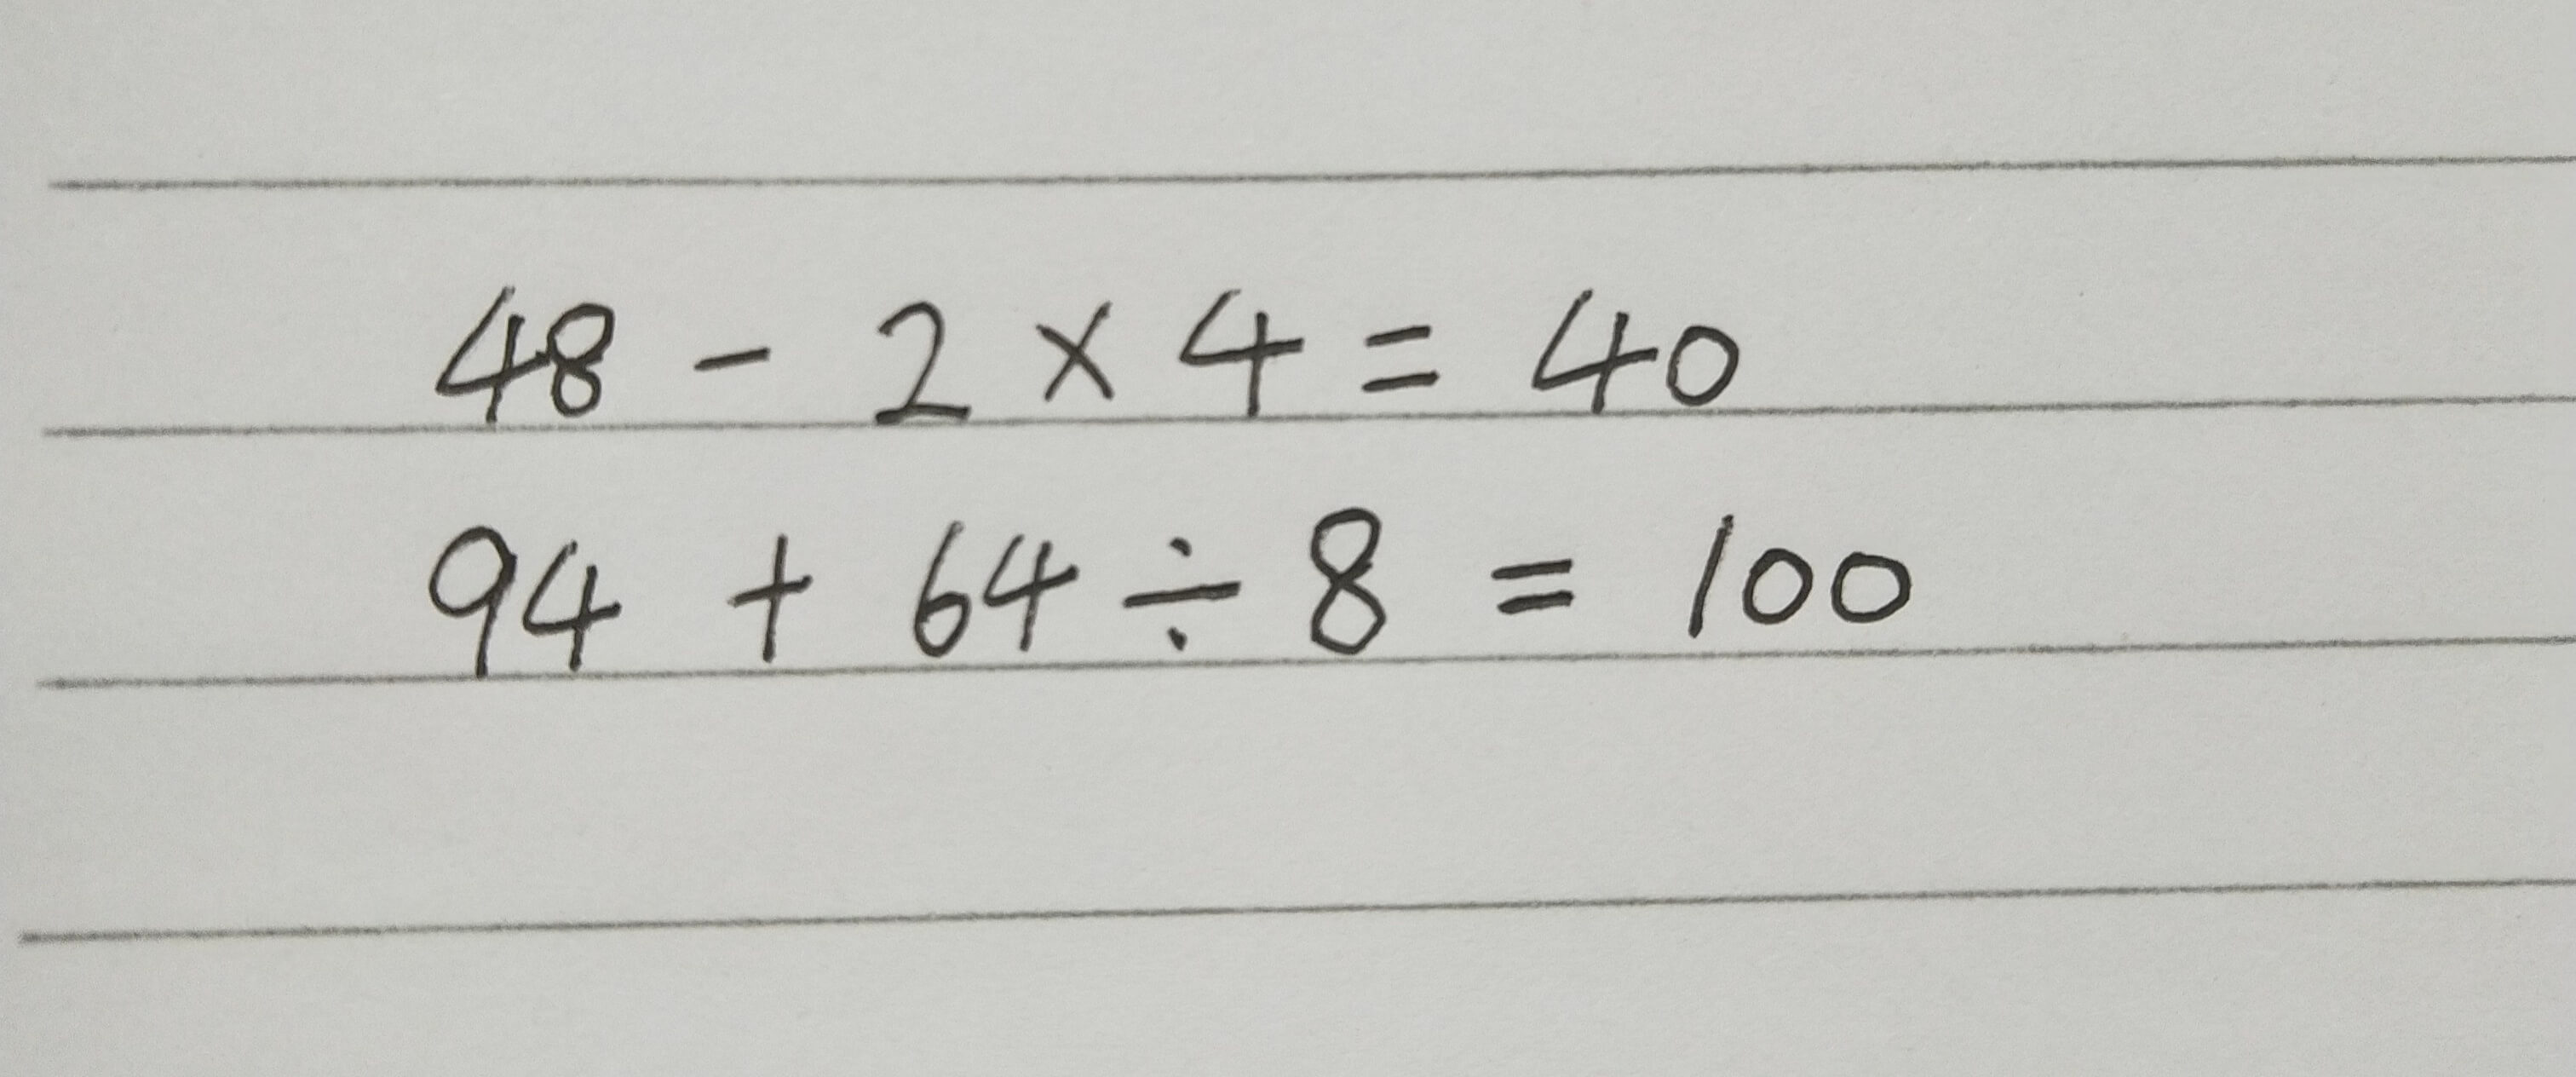 48 - 2 × 4 = 40
94 + 64 ÷ 8 = 100